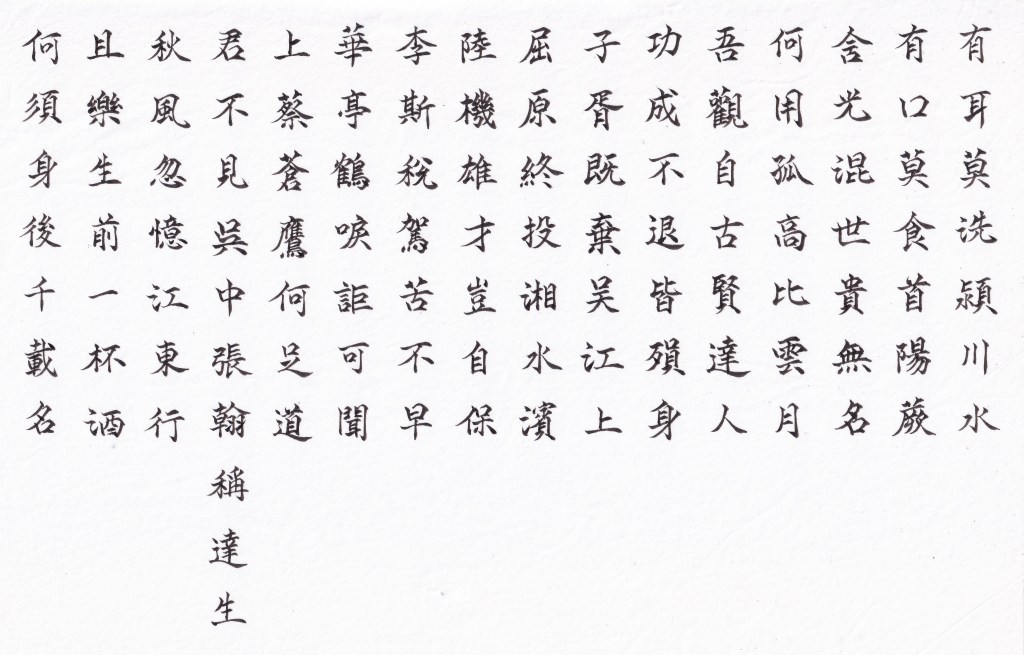 有耳莫洗潁川水
有口莫食首陽蕨
含光混世貴無名
何用孤高比雲月
吾觀自古賢達人
功成不退皆殞身
子胥既棄吴江上
屈原終投湘水濱
陸機雄才豈自保
李斯稅駕苦不早
華亭鶴唳詎可聞
上蔡蒼鷹何足道
君不見吳中張翰稱達生
秋風忽憶江東行
且樂生前一杯酒
何須身後千載名